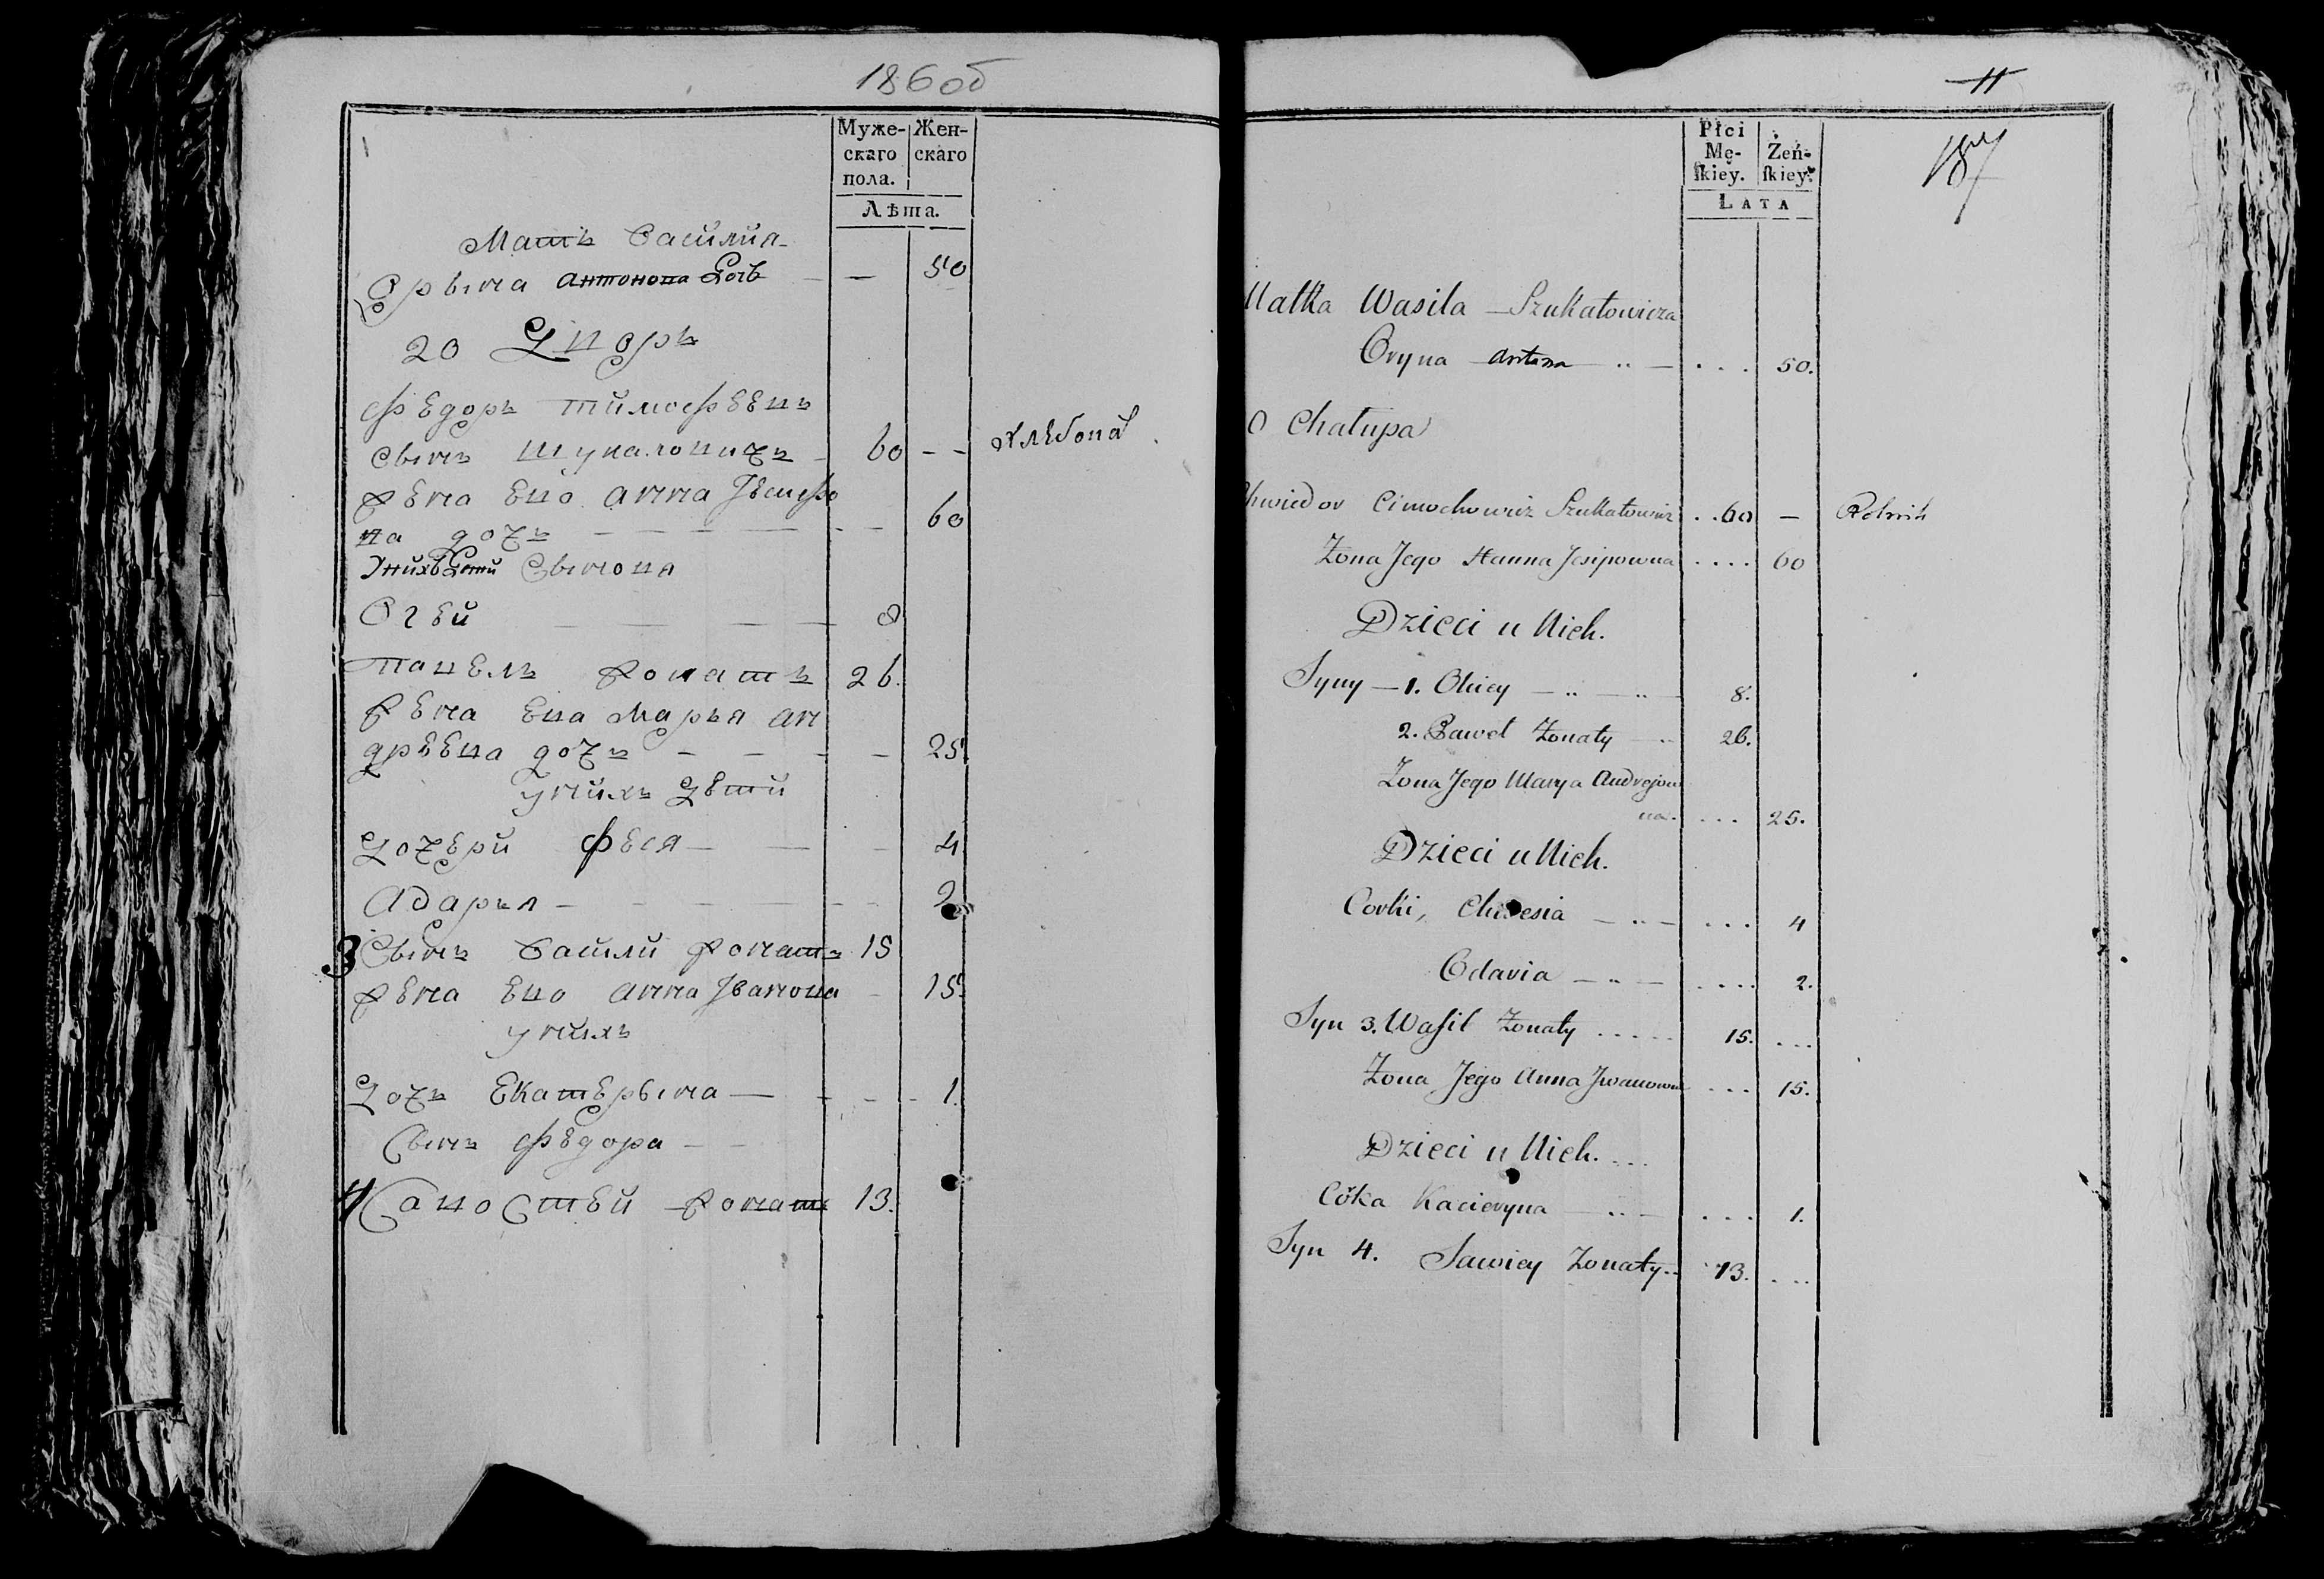 186об
Муже-
скаго
пола.
Жен-
скаго
Лѣта.
Мать Василия
Орына Антонова дочь — — 50
20 Дворъ
Федоръ Тимофѣевъ
сынъ Шукаловичъ 60 - - хлѣбопа
Жена Ево Анна Iвсифо
ва дочь — — — — - - 60
Унихъ дети Сынова
Огей — — — — 8
Павелъ Жонатъ 26.
Жена Ева Марья Ан
дрѣева дочь — — - — 25
Унихъ Дѣти
Дочери Феся — — - 4
Адарья — — — — 2
3 Сынъ Васили Жонатъ 15
Жена Ево Анна Iванова - 15.
унихъ
Дочь Екатерына — - - - 1.
Сынъ Федора - -
4 Савостей Жонатъ 13.
11
187
Płci
Mę-
ſkiey.
Żeń-
ſkiey.
LATA
Matka Wasila Szukałowicza
Oryna Antona .. — . . . 50.
0 Chałupa
Chwiedor Cimochowicz Szukałowicz . . 60 — Rolnik
Żona Jego Hanna Jesipowna . . . . 60
Dzieci u Nich.
Syny — 1. Ohiey — .. — .. — 8.
2. Paweł Żonaty — .. 26.
Żona Jego Marya Andrejow
na. . . . 25.
Dzieci u Nich.
Corki, Chwesia — .. — . . . 4
Odaria — .. — . . . . 2.
Syn 3. Waſil Żonaty . . . . . 15. . . .
Żona Jego Anna Jwanowna . . . 15.
Dzieci u Nich. . . .
Córka Kacieryna — .. — . . . 1.
Syn 4. Sawiey Żonaty.. 13. . . .